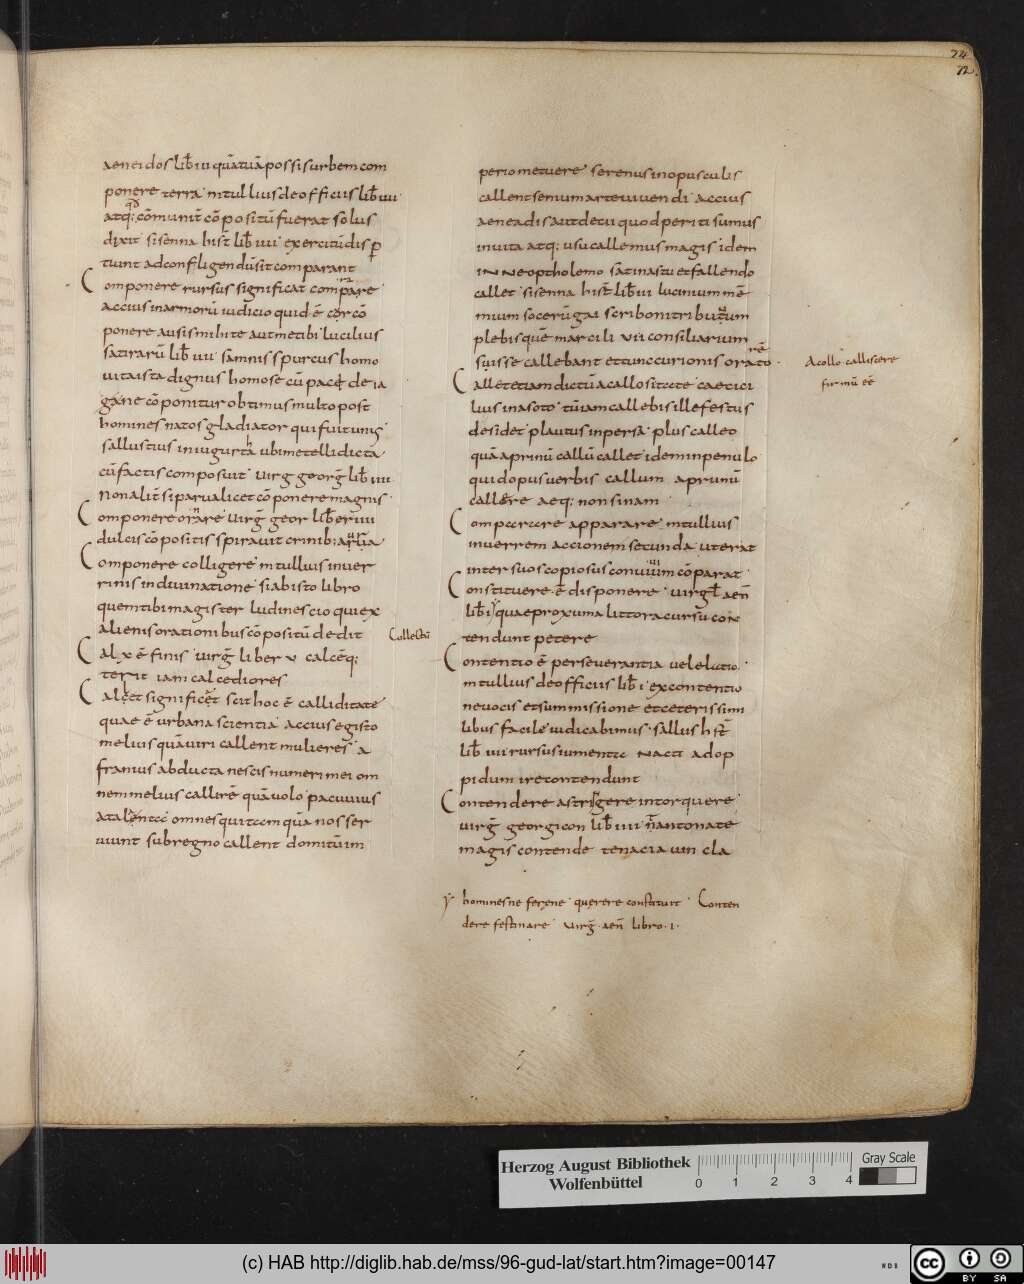 74
72
aeneidos lib̄ iii quātuā possis urbem com
ponere terra m tullius de officiis lib̄ iiii
atq; cōmunit cōpositū fuerat solus
dixit sisenna hist̄ lib̄ iiii exercitū disp
tiunt ad confligendū sit comparant
Componere rursus significat comparare
accius in armorū iudicio quid ē cor cō
ponere ausis mihi te aut me tibi lucilius
satirarū lib̄ iiii samnis spurcus homo
uita ista dignus homo se cū pace deia
gane cōponitur obtimus multo post
homines natos gladiator qui fuit unus
sallustius in iugurta ubi metelli dicta
cū factis composuit uirg georḡ lib̄ iiii
non alit̄ si parua licet cōponere magnis
Componere ornare uirḡ geor lib̄ iiii
dulcis cōpositis spirauit crinib; aura
Componere colligere m tullius in uer
rinis in diuinatione si ab isto libro
quem tibi magister ludi nescio qui ex
alienis orationibus cōpositū dedit
Collectū
Calx ē finis uirḡ liber v calcēq;
terit iam calce diores
Calcet significet scit hoc ē calliditate
quae ē urbana scientia accius egisto
melius quā uiri callent mulieres a
franius abducta nescis numeri mei om
nem melius callirē quā uolo pacuuius
atalente omnes qui tecm quā nos ser
uiunt sub regno callent domitū im
perio metuere serenus in opusculis
callent senium arte uiuendi accius
aeneadis aut detu quod periti sumus
in uita atq; usu callemus magis idem
in neoptholemo sat in astu et fallendo
callet sisenna hist̄ lib̄ iii lucinium mē
mium socerū gai scriboni tribunum
plebis quē marci lii vii consiliarium
suisse callebant et tunc curionis orato
Acollo calliscere
firmū eē
Callet etiam dictū a callo sit cete caecici
lius in asoto tū iam callebis ille festus
desidet plautus in persa plus calleo
quā aprunū callū callet idem in penulo
qui dopus uerbis callum aprunū
callere aeq; non sinam
Compcercre apparare m tullius
in uerrem accionem secunda uterat
inter suos copiosus conuiuium cōparat
Constituere ē disponere uirgl̄ aen̄
lib̄ i quae proxuma littora cursu con
tendunt petere
Contentio ē perseuerantia uel electio
m tullius de officiis lib̄ i ex contentio
ne uocis et summissione et ceteris simi
libus facile iudicabimus sallus hst̄
lib̄ iiii rursus iumentc nacti ad op
pidum ire contendunt
Contendere astringere intorquere
uirḡ georgicon lib̄ iiii n̄ ante nate
magis contende tenacia uin cla
homines ne ferene querere constituit Conten
dere festinare uirḡ aen̄ libro i
Herzog August Bibliothek
Wolfenbüttel
0 1 2 3 4
Gray Scale
(c) HAB http://diglib.hab.de/mss/96-gud-lat/start.htm?image=00147
WDB
CC BY SA